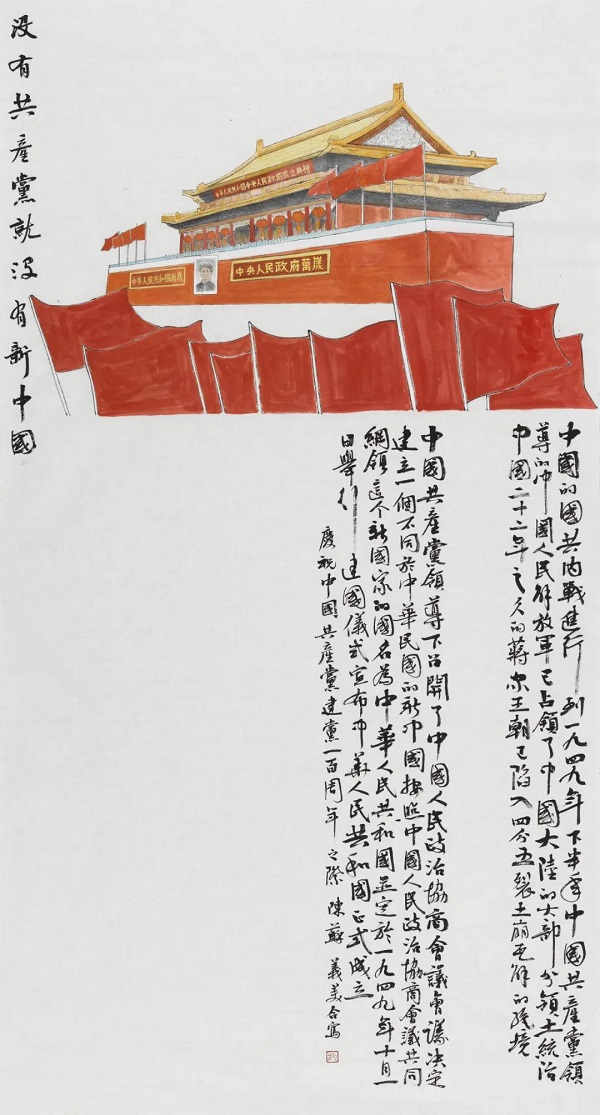 没有共產黨就没有新中國
中華人民共和國中央人民政府成立典禮
中華人民共和國萬歲
中央人民政府萬歲
中國的國共内戰進行到一九四九年下半年中國共產黨領
導的中國人民解放軍已占領了中國大陸的大部分領土統治
中國二十二年之久的蔣家王朝已陷入四分五裂土崩瓦解的绝境
中國共產黨領導下召開了中國人民政治協商會議會議决定
建立一個不同於中華民國的新中國按照中國人民政治協商會議共同
綱領這个新國家的國名為中華人民共和國並定於一九四九年十月一
日舉行建國儀式宣布中華人民共和國正式成立
慶祝中國共產黨建黨一百周年之際 陳蘇 義美合寫